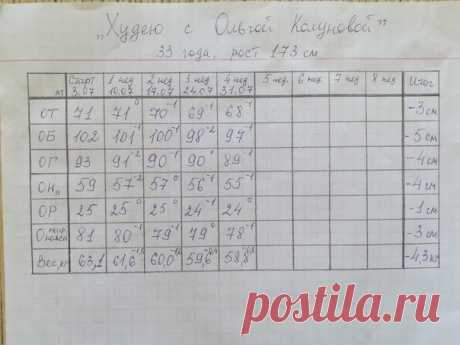 „Худею с Ольгой Колуновой"
33 года, рост 173 см
кг Старт 3.07 1 нед 10.07 2 нед 17.07 3 нед 24.07 4 нед 31.07 5 нед. 6 нед 7 нед 8 нед Итог
ОТ 71 71 0 70 -1 69 -1 68 -1 -3 см
ОБ 102 101 -1 100 -1 98 -2 97 -1 -5 см
ОГ 93 91 -2 90 -1 90 0 89 -1 -4 см
ОНп 59 57 -2 57 0 56 -1 55 -1 -4 см
ОР 25 25 0 25 0 24 -1 24 0 -1 см
О 81 80 -1 79 -1 79 0 78 -1 -3 см
Вес, кг 63,1 61,6 60,0 59,6 58,8 -4,3 кг
postila.ru